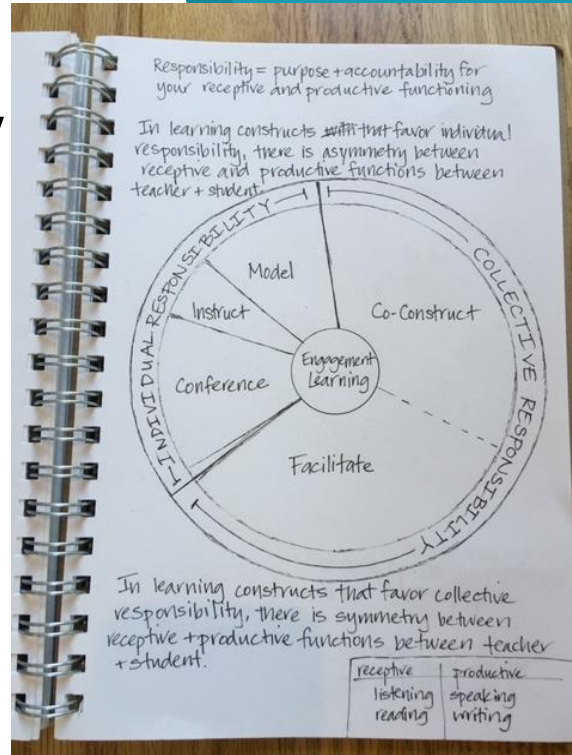 Responsibility = purpose + accountability for
your receptive and productive functioning
In learning constructs that favor individual
responsibility, there is asymmetry between
receptive and productive functions between
teacher + student.
INDIVIDUAL RESPONSIBILITY
COLLECTIVE RESPONSIBILITY
Model
Instruct
Co-Construct
Engagement
Learning
Conference
Facilitate
In learning constructs that favor collective
responsibility, there is symmetry between
receptive + productive functions between teacher
+ student.
receptive productive
listening speaking
reading writing